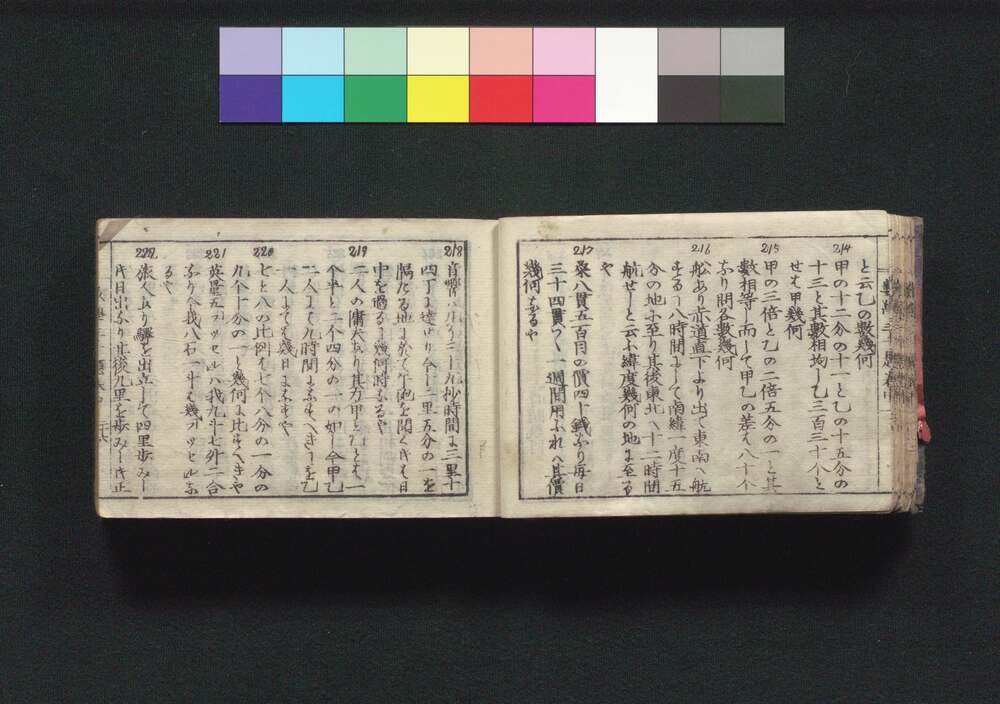 と云乙の數幾何
214
甲の十二分の十一と乙の十五分の
十三と其數相均し乙三百三十个と
せは甲幾何
215
甲の三倍と乙の二倍五分の一と其
數相等し而して甲乙の差は八十个
なり問各數幾何
216
船あり赤道直下より出て東南へ航
する八時間にして南緯一度十五
分の地に至り其後東北へ十二時間
航せしと云ふ緯度幾何の地に至る
や
217
八貫五百目の價四十錢なり每日
三十四貫つゝ一週間用ふれハ其價
幾何なるや
218
音響ハ九分二十九抄時間に三里十
四丁に達す今一里五分の一を
隔たる地に於て
中を幾何時なるや
219
二人の あり其力甲と
个半と二个四分の一の如し今甲乙
二人にて九時間に へきを乙
一人にてハ幾日に や
220
七と八の比例は七个八分の一分の
九个十分の一と幾何に比すへきや
221
五フッセルハ我九斗七升二合
なり今我八石一斗は幾フッセルな
るや
222
旅人あり驛を出立して四里歩みし
時日出なり其後九里を歩みし時正